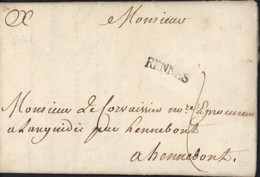 Monsieur
RENNES
Monsieur Le Corvaisier no.re & procureur
a Languidic par hennebont
a hennebont.